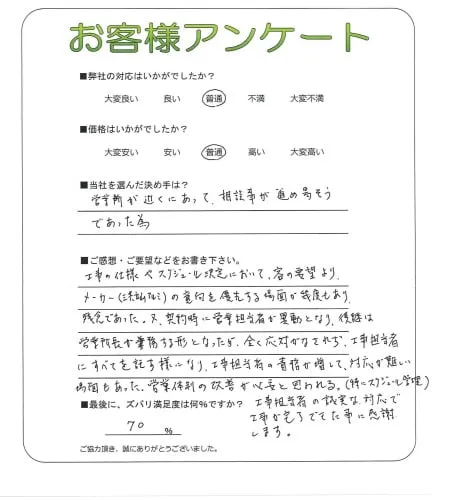 お客様アンケート
■弊社の対応はいかがでしたか?
大変良い 良い 普通 不満 大変不満
■価格はいかがでしたか?
大変安い 安い 普通 高い 大変高い
■当社を選んだ決め手は?
営業所が近くにあって、相談事が進め易そう
であった為
■ご感想・ご要望などをお書き下さい。
工事の仕様やスケジュール決定において、客の要望より、
メーカー(三協アルミ)の意向を優先する場面が幾度もあり、
残念であった。又、契約時に営業担当者が異動となり、後継は
営業所長が兼務する形となったが、全く応対がなされず、工事担当者
にすべてを託す様になり、工事担当者の負担が増して、対応が難しい
場面もあった。営業体制の改善が必要と思われる。(特にスケジュール管理)
■最後に、ズバリ満足度は何%ですか?
70 %
工事担当者の誠実な対応で
工事が完了できた事に感謝
します。
ご協力頂き、誠にありがとうございました。